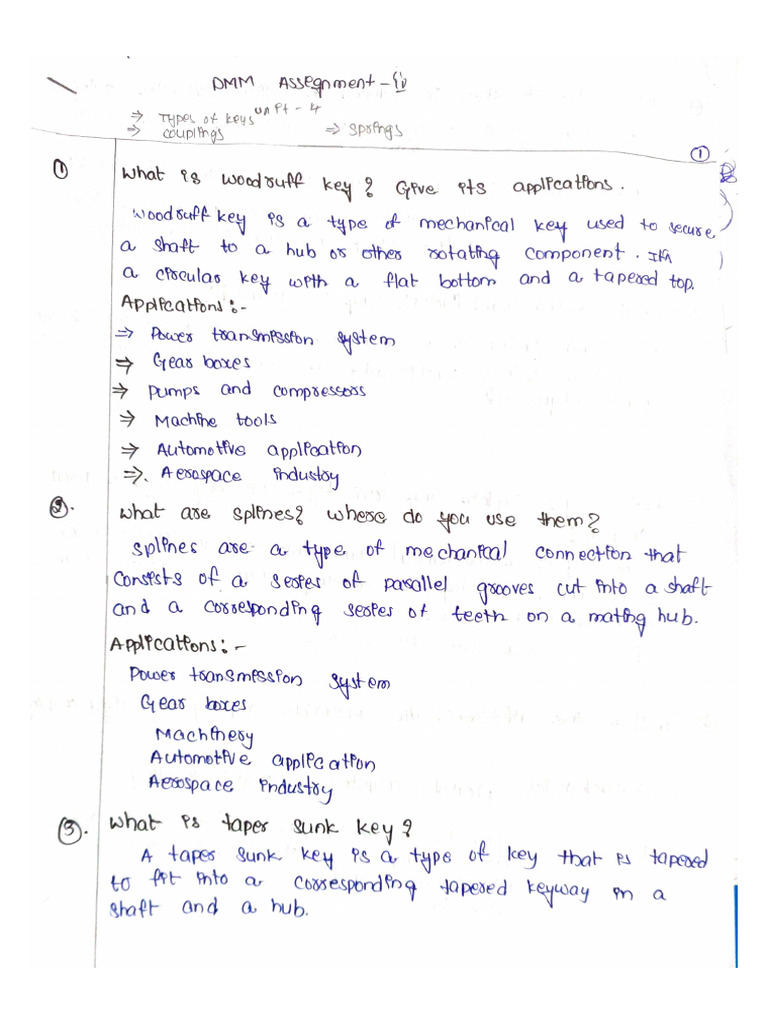 DMM Assegnment - iv
unit - 4
⇒ Types of keys
⇒ couplings ⇒ springs
①
① What is woodruff key? Give its applications.
Woodruff key is a type of mechanical key used to secure
a shaft to a hub or other rotating component. It is
a circular key with a flat bottom and a tapered top.
Applications:-
⇒ Power transmission system
⇒ Gear boxes
⇒ Pumps and compressors
⇒ Machine tools
⇒ Automotive application
⇒. Aerospace industry
②. What are splines? where do you use them?
Splines are a type of mechanical connection that
consists of a series of parallel grooves cut into a shaft
and a corresponding series of teeth on a mating hub.
Applications:-
Power transmission system
Gear boxes
Machinery
Automotive application
Aerospace industry
③. What is taper sunk key?
A taper sunk key is a type of key that is tapered
to fit into a corresponding tapered keyway in a
shaft and a hub.